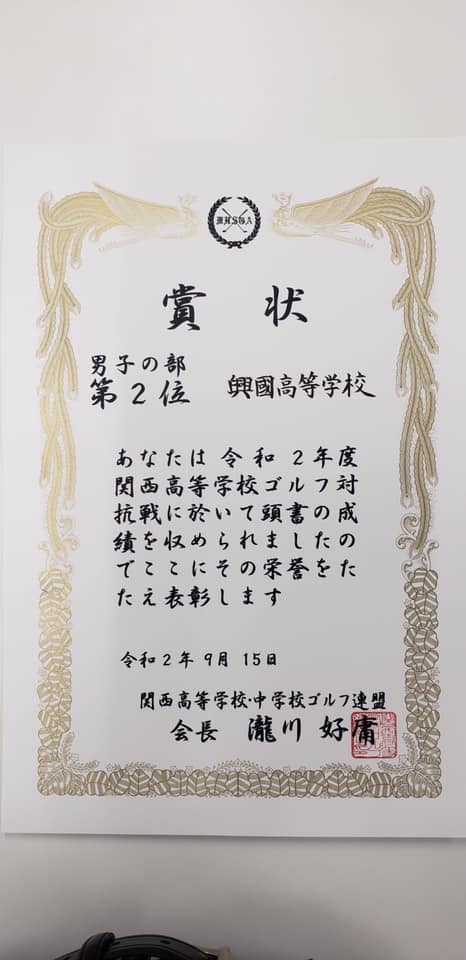 KHSGA
賞状
男子の部
第2位 興國高等学校
あなたは令和2年度
関西高等学校ゴルフ対
抗戦に於いて頭書の成
績を収められましたの
でここにその栄誉をた
たえ表彰します
令和2年9月15日
関西高等学校・中学校ゴルフ連盟
会長 瀧川好庸